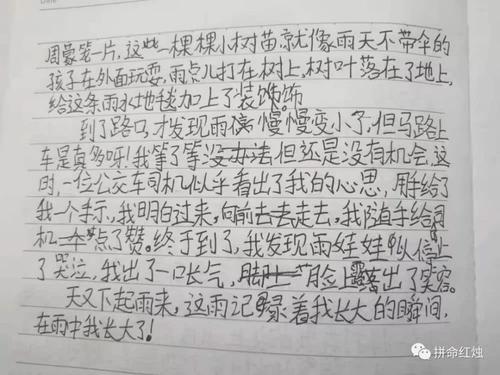 周蒙笼一片,这些一棵棵小树苗,就像雨天不带伞的
孩子在外面玩耍,雨点儿打在树上,树叶落在了地上,
给这条雨水地毯加上了装饰。饰
到了路口,才发现雨慢慢变小了,但马路上
车是真多呀!我等了等没办法,但还是没有机会,这
时,一位公交车司机似乎看出了我的心思,用手给了
我一个手示,我明白过来,向前去走去,我随手给司
机一个点了赞。终于到了,我发现雨娃娃似停止
了哭泣,我出了一口长气,脸上露出了笑容。
天又下起雨来,这雨记录着我长大的瞬间,
在雨中我长大了!
拼命红烛